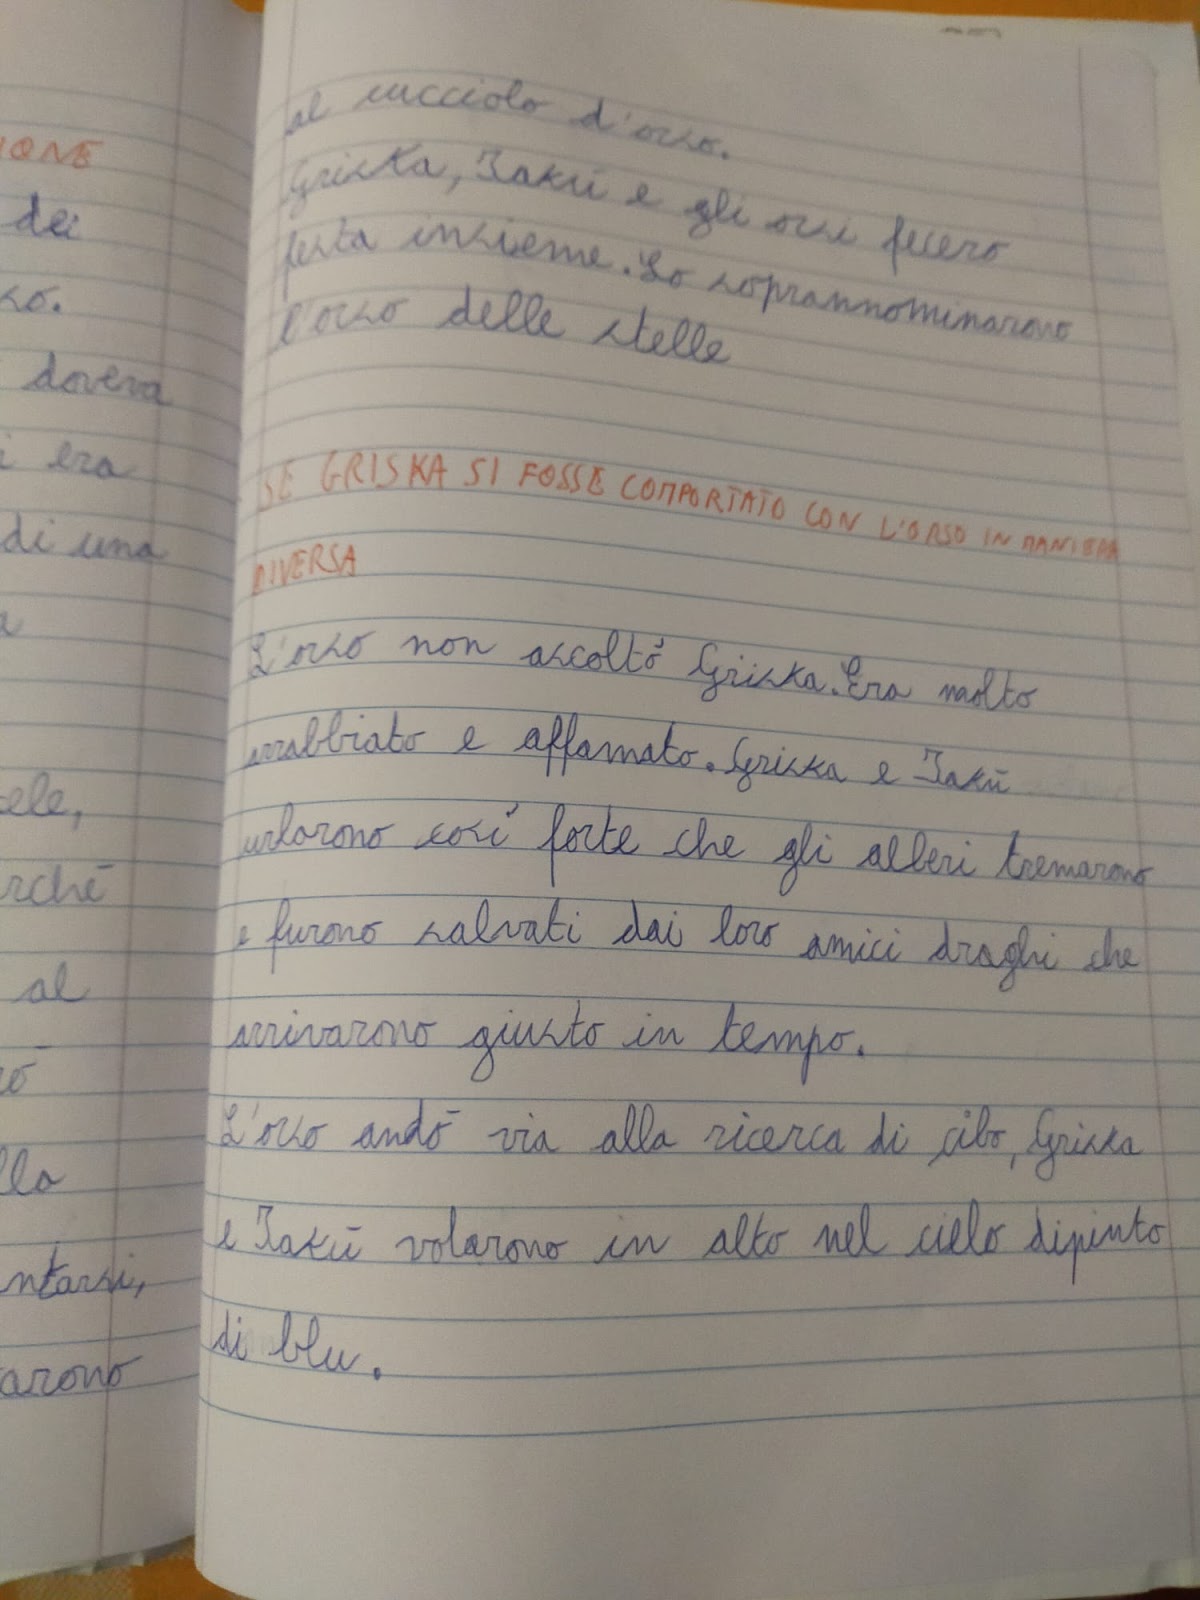 IONE
dei
so.
doveva
i era
di una
a
ele,
rché
al
ò
lla
ntarsi,
arono
al cucciolo d'orso.
Griska, Takū e gli orsi fecero
festa insieme. Lo soprannominarono
l'orso delle stelle
SE GRISKA SI FOSSE COMPORTATO CON L'ORSO IN MANIERA
DIVERSA
L'orso non ascoltò Griska. Era molto
arrabbiato e affamato. Griska e Takū
urlarono così forte che gli alberi tremarono
e furono salvati dai loro amici draghi che
arrivarono giusto in tempo.
L'orso andò via alla ricerca di cibo, Griska
e Takū volarono in alto nel cielo dipinto
di blu.